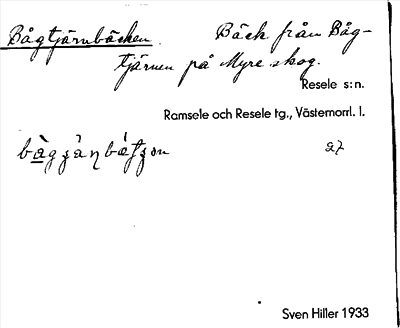 Bågtjärnbäcken. Bäck från Båg-
tjärnen på Myre skog.
Resele s:n.
Ramsele och Resele tg., Västernorrl. l.
a7
Sven Hiller 1933